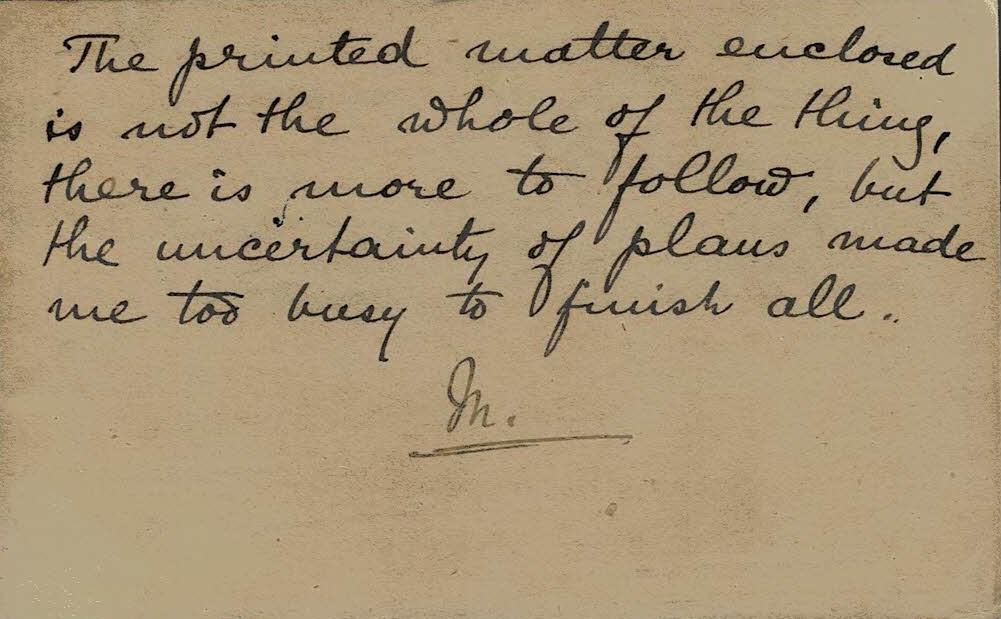 The printed matter enclosed
is not the whole of the thing,
there is more to follow, but
the uncertainty of plans made
me too busy to finish all.
M.